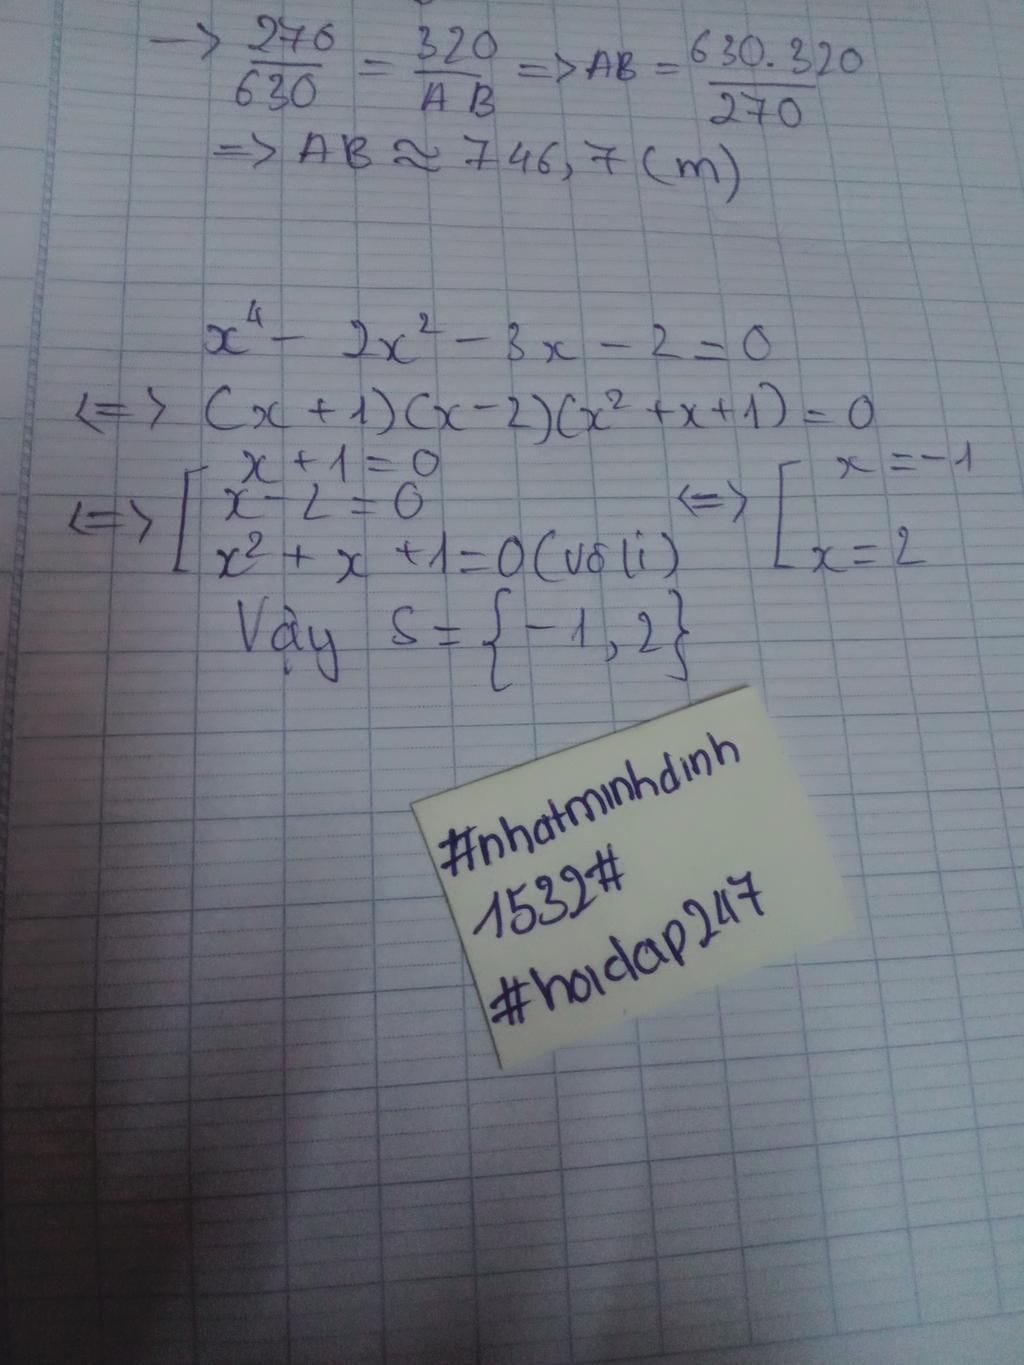 -> 276/630 = 320/AB => AB = 630.320/270
=> AB ≈ 746,7 (m)
x⁴ - 2x² - 3x - 2 = 0
<=> (x + 1)(x - 2)(x² + x + 1) = 0
<=> [ x + 1 = 0
x - 2 = 0
x² + x + 1 = 0 (vô lí)
<=> [ x = -1
x = 2
Vậy S = {-1, 2}
#nhatminhdinh
1532#
#hoidap247